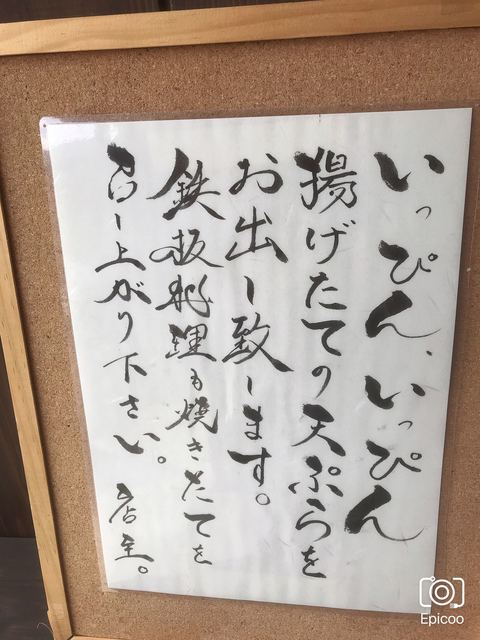 いっぴん、いっぴん
揚げたての天ぷらを
お出し致します。
鉄板料理も焼きたてを
召し上がり下さい。
店主。
Epicoo